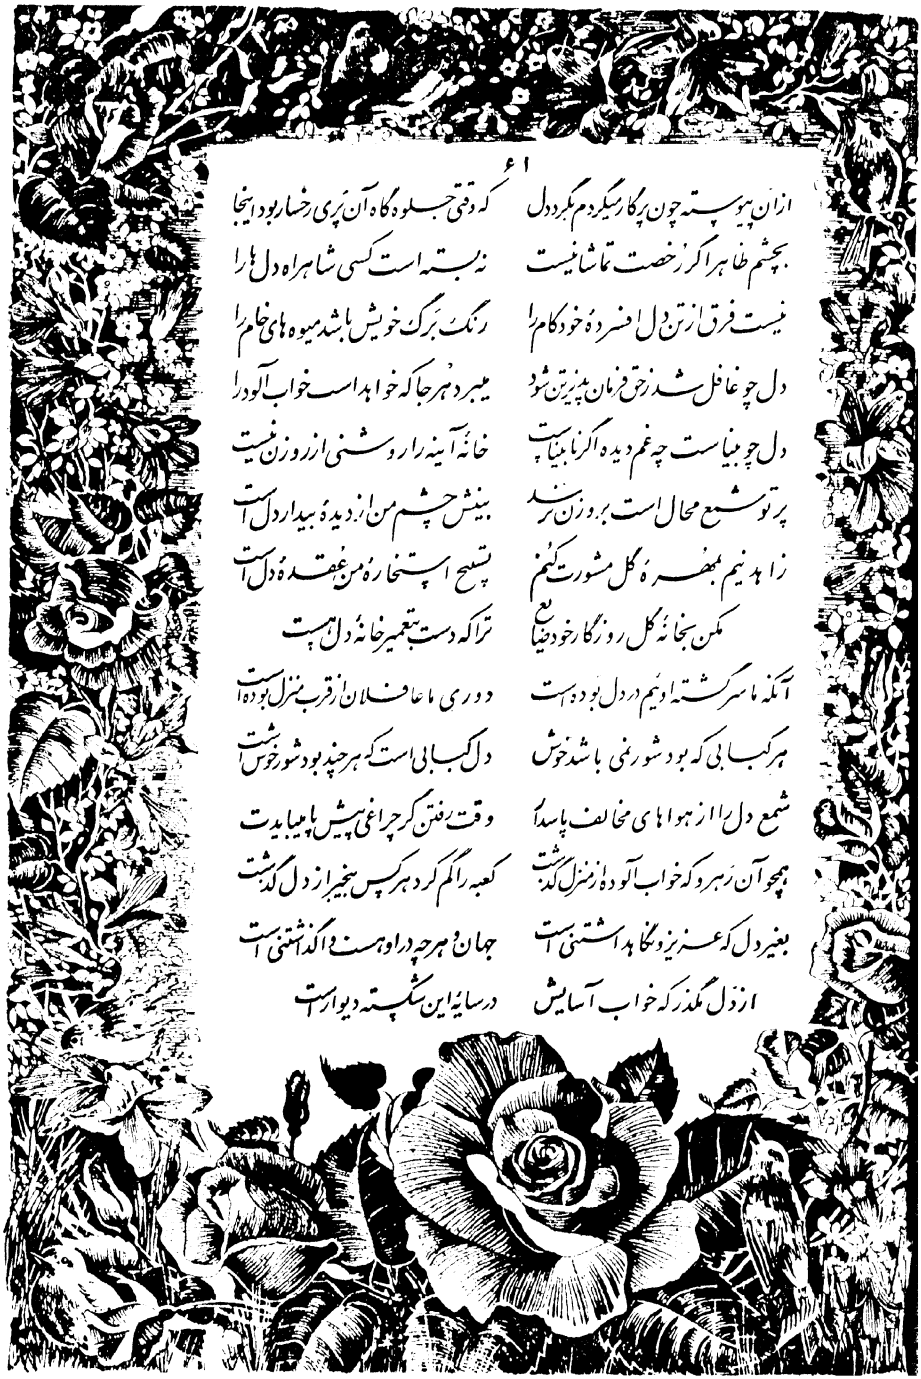 ۶۱
ازان پیوسته چون پرگار میگردم بگرد دل که وقتی جلوه گاه آن پری رخسار بود اینجا
بچشم ظاهر اگر رخصت تماشا نیست نه بسته است کسی شاهراه دل ها را
نیست فرق از تن دل افسردهٔ خودکام را رنگ برگ خویش باشد میوه های خام را
دل چو غافل شد ز حق فرمان پذیر تن شود میبرد هر جا که خواهد اسب خواب آلود را
دل چو بیناست چه غم دیده اگر نابیناست خانهٔ آینه را روشنی از روزن نیست
پرتو شمع محال است بروزن نرسد بینش چشم من از دیدهٔ بیدار دل است
زاهد نیم بمهرهٔ گل مشورت کنم تسبیح استخارهٔ من عقدهٔ دل است
مکن بخانهٔ گل روزگار خود ضایع ترا که دست بتعمیر خانهٔ دل هست
آنکه ما سرگشتهٔ اوئیم در دل بوده است دوری ما غافلان از قرب منزل بوده است
هر کبابی که بود شور نمی باشد خوش دل کبابی است که هر چند بود شور خوش است
شمع دل را از هواهای مخالف پاسدار وقت رفتن گر چراغی پیش پا میبایدت
همچو آن رهرو که خواب آلوده از منزل گذشت کعبه را گم کرد هر کس بیخبر از دل گذشت
بغیر دل که عزیز و نگاهداشتنی است جهان و هرچه در او هست واگذاشتنی است
از دل مگذر که خواب آسایش در سایهٔ این شکسته دیوار است